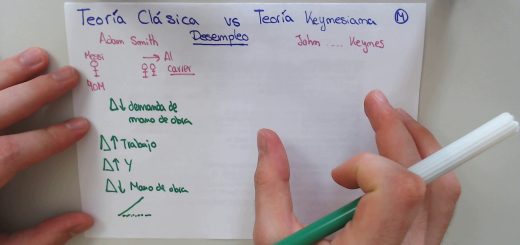 Teoría Clásica vs Teoría Keynesiana
Desempleo
Adam Smith
John .... Keynes
Messi → Al
Carrier
40M
Δ↓ demanda de
mano de obra
Δ↑ Trabajo
Δ↑ Y
Δ↓ Mano de obra